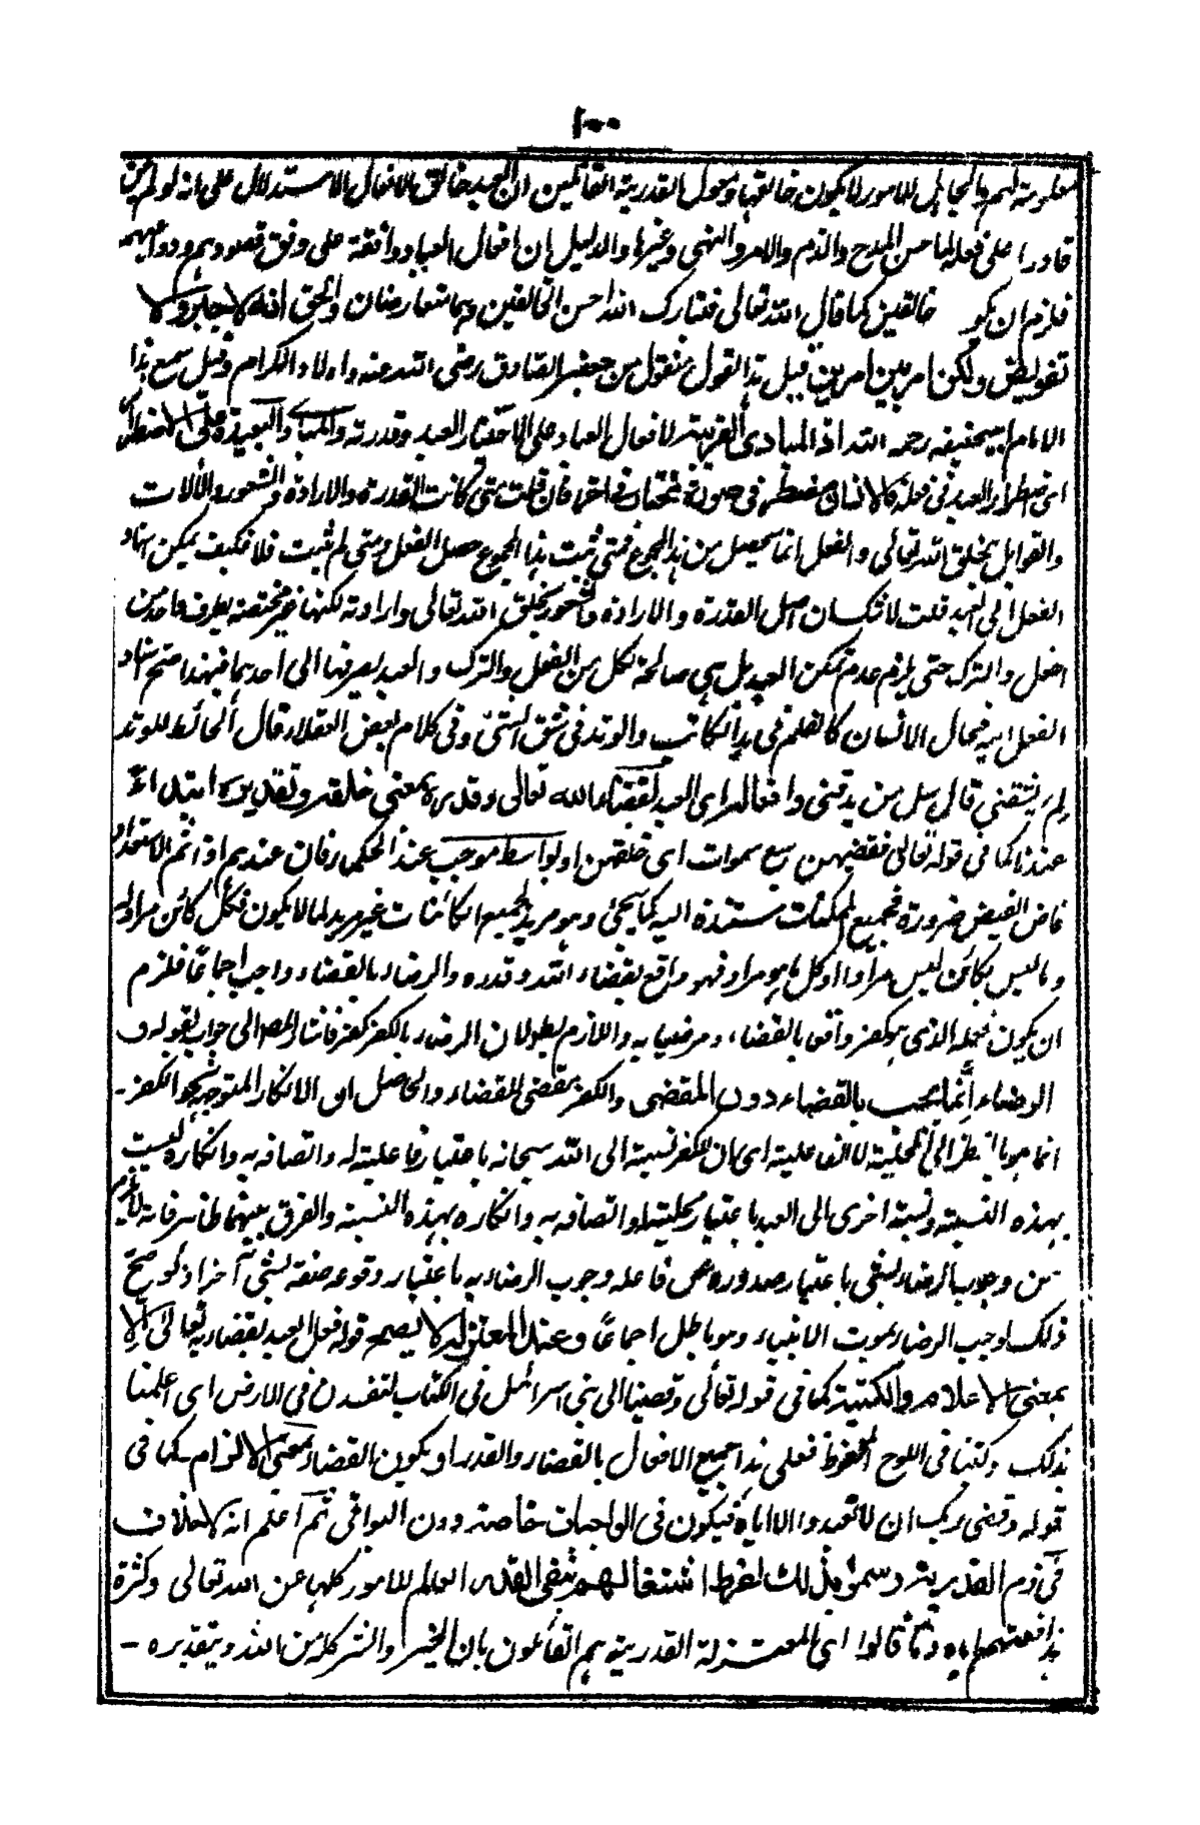 ١٠٠
معلومة لهم والجاهل للامور لا يكون خالقها ومعول القدرية القائلين ان العبد خالق للافعال الاستدلال على انه لو لم يكن
قادرا على فعله لما حسن المدح والذم والامر والنهي وغيرها والدليل ان افعال العباد واقعة على وفق قصودهم ودواعيهم
فلزم ان خالقين كما قال الله تعالى فتبارك الله احسن الخالقين وهما متعارضان والحق انه لا جبر ولا
تفويض ولكن امر بين امرين قيل هذا القول منقول من جعفر الصادق رضي الله عنه واولاد الكرام وقيل سمع هذا
الامام ابيحنيفه رحمه الله اذ المبادى القريبة لافعال العباد على الاختيار العبد وقدرته والمبادى البعيدة على الاضطرار
اى اضطرار العبد في فعله كالانسان مضطر في صورة مختار فان قلت متى كانت القدرة والارادة والشعور والآلات
والقوابل بخلق الله تعالى والفعل انما يحصل من هذا المجموع فمتى ثبت هذا المجموع حصل الفعل ومتى لم يثبت فلا فكيف يمكن اسناد
الفعل الى العبد قلت لا شك ان اصل القدرة والارادة والشعور بخلق الله تعالى وارادته لكنها غير مختصة بطرف واحد من
الفعل والترك حتى يلزم عدم تمكن العبد بل هي صالحة لكل من الفعل والترك والعبد يصرفها الى احدهما فبهذا صح اسناد
الفعل اليه فحال الانسان كالقلم في يد الكاتب والوتد في شق الشئ وفي كلام بعض العقلاء قال الحائط للوتد
لم تشقني قال سل من يدقني وافعاله اى العبد بقضاء الله تعالى وقدره بمعنى خلقه وتقديره ابتداءً
عندنا كما في قوله تعالى فقضيهن سبع سموات اى خلقهن او بواسط موجب عند الحكماء فان عندهم اذا تم الاستعداد
فاض الفيض ضرورة فجميع الممكنات مستندة اليه كما يجئ وهو مريد لجميع الكائنات غير مريد لما لا يكون فكل كائن مراد له
وما ليس بكائن ليس مرادا او كل ما هو مراد فهو واقع بقضاء الله وقدره والرضاء بالقضاء واجب اجماعا فلزم
ان يكون فعله الذى هو كفر واقعا بالقضاء ومرضيا به واللازم بطولان الرضاء بالكفر كفر فاشار المصـ الى جوابه بقوله و
الرضاء انما يجب بالقضاء دون المقضى والكفر مقضى لا قضاء والحاصل ان الانكار المتوجه نحو الكفر -
انما هو بالنظر الى المحلية لا الفاعلية اى ان للكفر نسبة الى الله سبحانه باعتبار فاعليته له واتصافه به وانكاره ليست
بهذه النسبة ونسبة اخرى الى العبد باعتبار محليته له واتصافه به وانكاره بهذه النسبة والفرق بينهما ظاهر فانه لا يلزم
من وجوب الرضاء لشئ باعتبار صدوره عن فاعله وجوب الرضاء به باعتبار وقوعه صفة لشئ آخر اذ لو صح
ذلك لوجب الرضاء بموت الانبياء وهو باطل اجماعًا وعند المعتزلة لا يصح قوله فعل العبد بقضاءه تعالى الا
بمعنى الاعلام والكتبة كما في قوله تعالى وقضينا الى بني اسرائيل في الكتاب لتفسدن في الارض اى اعلمنا
بذلك وكتبنا في اللوح المحفوظ فعلى هذا جميع الافعال بالقضاء والقدر او يكون القضاء بمعنى الالزام كما في
قوله وقضى ربك ان لا تعبدوا الا اياه فيكون في الواجبات خاصة دون البواقى ثم اعلم انه لا خلاف
فى ذم القدرية وسموا بذلك لفرط اشتغالهم بنفى القدر العالم للامور كلها عن الله تعالى وكثرة
مدافعتهم اياه وما قالوا اى المعتزلة القدرية هم القائلون بان الخير والشر كله من الله وبتقديره -